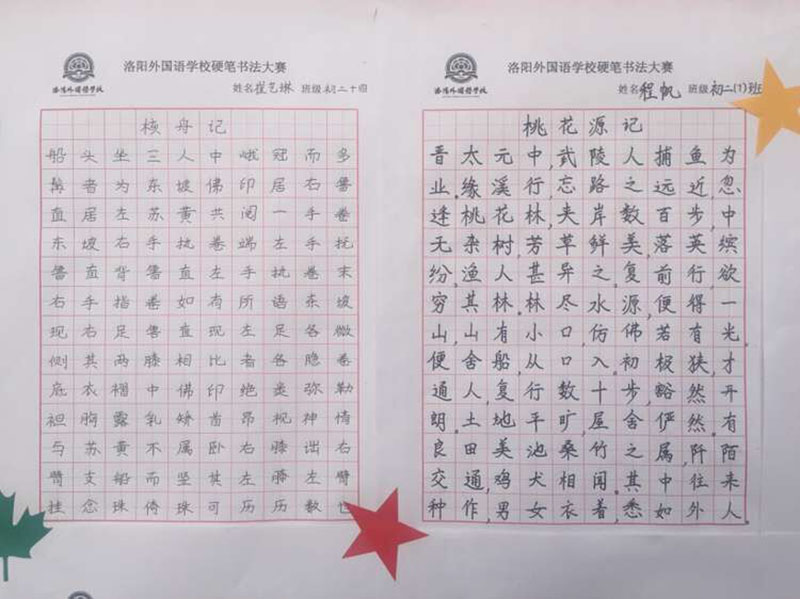 洛阳外国语学校硬笔书法大赛
洛阳外国语学校
姓名崔艺琳 班级初二十四
核舟记
船头坐三人中峨冠而多
髯者为东坡佛印居右鲁
直居左苏黄共阅一手卷
东坡右手执卷端左手抚
鲁直背鲁直左手执卷末
右手指卷如有所语东坡
现右足鲁直现左足各微
侧其两膝相比者各隐卷
底衣褶中佛印绝类弥勒
袒胸露乳矫首昂视神情
与苏黄不属卧右膝诎右
臂支船而竖其左膝左臂
挂念珠倚珠可历历数也
洛阳外国语学校硬笔书法大赛
洛阳外国语学校
姓名程帆 班级初二(1)班
桃花源记
晋太元中,武陵人捕鱼为
业。缘溪行,忘路之远近,忽
逢桃花林,夹岸数百步,中
无杂树,芳草鲜美,落英缤
纷。渔人甚异之。复前行,欲
穷其林。林尽水源,便得一
山,山有小口,仿佛若有光,
便舍船,从口入。初极狭,才
通人,复行数十步,豁然开
朗。土地平旷,屋舍俨然。有
良田美池桑竹之属,阡陌
交通,鸡犬相闻。其中往来
种作,男女衣着,悉如外人